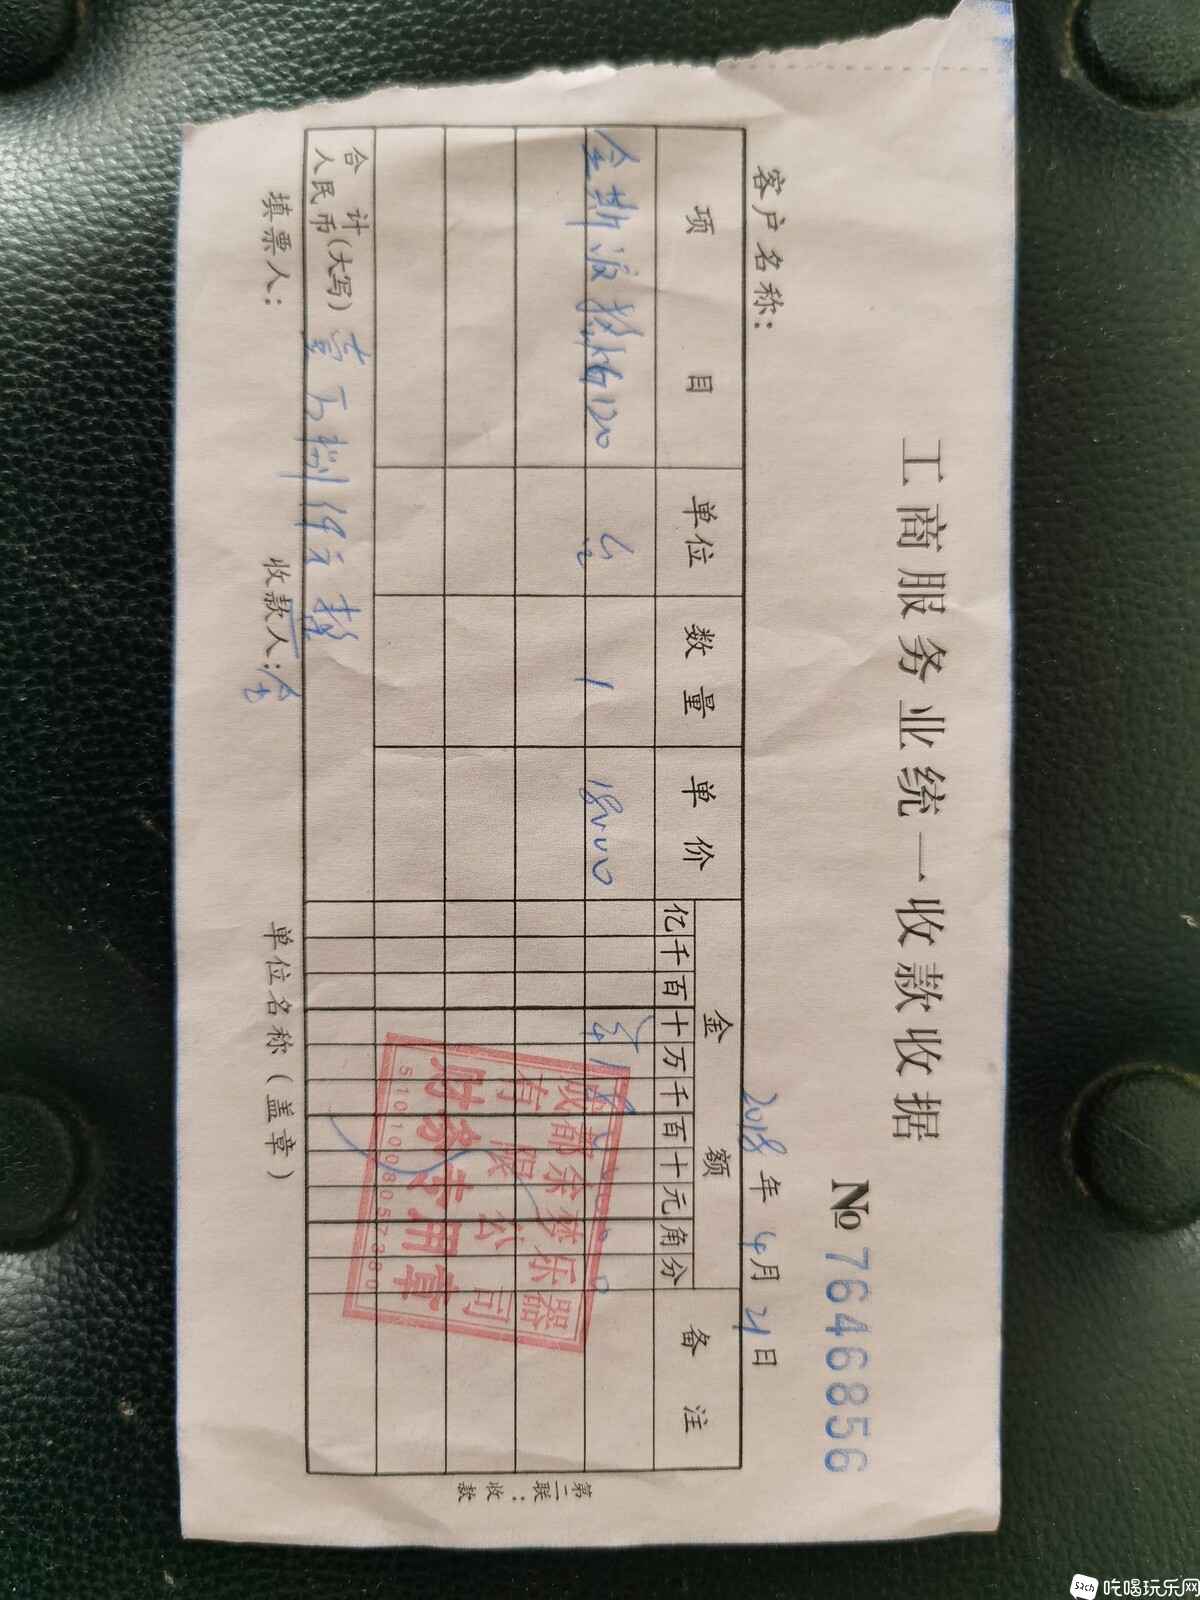 工商服务业统一收款收据
№ 7646856
客户名称：
2018年4月21日
项目 单位 数量 单价 金额 备注
亿千百十万千百十元角分
金斯波格KG120 台 1 18000 ¥1800000
合计人民币(大写) 壹万捌仟元整
填票人： 收款人：
单位名称(盖章)
第二联：收款
成都余梦乐器
有限公司
财务专用章
5101008057380
吃喝玩乐网